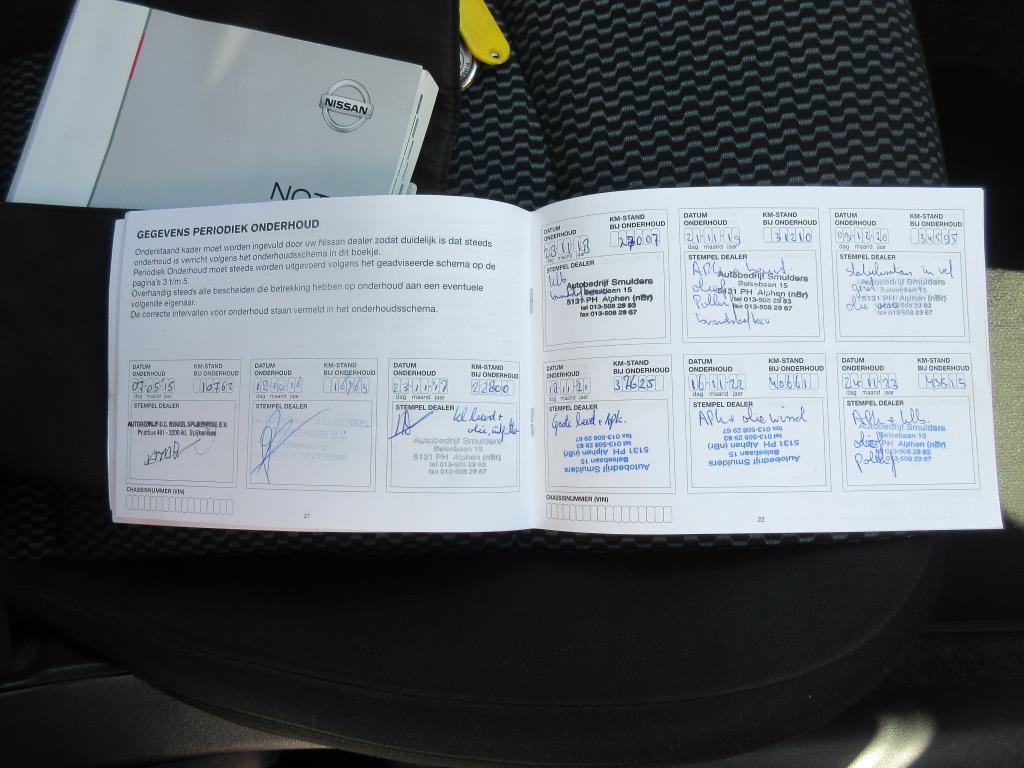 NISSAN
NOT
GEGEVENS PERIODIEK ONDERHOUD
Onderstaand kader moet worden ingevuld door uw Nissan dealer zodat duidelijk is dat steeds
onderhoud is verricht volgens het onderhoudsschema in dit boekje.
Periodiek Onderhoud moet steeds worden uitgevoerd volgens het geadviseerde schema op de
pagina's 3 t/m 5.
Overhandig steeds alle bescheiden die betrekking hebben op onderhoud aan een eventuele
volgende eigenaar.
De correcte intervallen voor onderhoud staan vermeld in het onderhoudsschema.
DATUM ONDERHOUD
KM-STAND BIJ ONDERHOUD
07-05-15
10762
dag maand jaar
STEMPEL DEALER
AUTOBEDRIJF D.C. BERKEL SPIJKENISSE B.V.
Postbus 481 - 3200 AL Spijkenisse
DATUM ONDERHOUD
KM-STAND BIJ ONDERHOUD
12-10-16
dag maand jaar
STEMPEL DEALER
DATUM ONDERHOUD
KM-STAND BIJ ONDERHOUD
23-11-17
22800
dag maand jaar
STEMPEL DEALER
Autobedrijf Smulders
Belsebaan 15
5131 PH Alphen (nBr)
tel 013-508 29 83
fax 013-508 29 67
CHASSISNUMMER (VIN)
21
DATUM ONDERHOUD
KM-STAND BIJ ONDERHOUD
dag maand jaar
STEMPEL DEALER
Autobedrijf Smulders
Belsebaan 15
5131 PH Alphen (nBr)
tel 013-508 29 83
fax 013-508 29 67
DATUM ONDERHOUD
KM-STAND BIJ ONDERHOUD
21-11-19
31210
dag maand jaar
STEMPEL DEALER
Autobedrijf Smulders
Belsebaan 15
5131 PH Alphen (nBr)
tel 013-508 29 83
fax 013-508 29 67
DATUM ONDERHOUD
KM-STAND BIJ ONDERHOUD
03-12-20
34595
dag maand jaar
STEMPEL DEALER
Autobedrijf Smulders
Belsebaan 15
5131 PH Alphen (nBr)
tel 013-508 29 83
fax 013-508 29 67
DATUM ONDERHOUD
KM-STAND BIJ ONDERHOUD
37625
dag maand jaar
STEMPEL DEALER
Grote beurt + Apk.
Autobedrijf Smulders
Belsebaan 15
5131 PH Alphen (nBr)
tel 013-508 29 83
fax 013-508 29 67
DATUM ONDERHOUD
KM-STAND BIJ ONDERHOUD
16-11-22
40661
dag maand jaar
STEMPEL DEALER
Autobedrijf Smulders
Belsebaan 15
5131 PH Alphen (nBr)
tel 013-508 29 83
fax 013-508 29 67
DATUM ONDERHOUD
KM-STAND BIJ ONDERHOUD
24-11-23
43515
dag maand jaar
STEMPEL DEALER
Autobedrijf Smulders
Belsebaan 15
5131 PH Alphen (nBr)
tel 013-508 29 83
fax 013-508 29 67
CHASSISNUMMER (VIN)
22